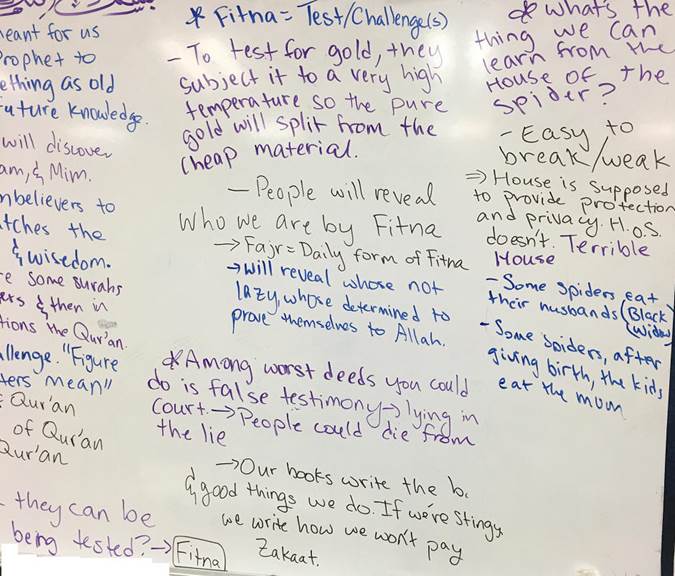 meant for us
Prophet to
ething as old
future knowledge.
will discover
am, & Mim.
nbelievers to
atches the
& wisedom.
re some surahs
ers & then in
tions the Qur'an.
allenge. "Figure
ters mean"
Qur'an
of Qur'an
Qur'an
they can be
being tested? → Fitna
* Fitna = Test/Challenge(s)
- To test for gold, they
subject it to a very high
temperature so the pure
gold will split from the
cheap material.
- People will reveal
who we are by Fitna
→ Fajr = Daily form of Fitna
→ will reveal whose not
lazy, whose determined to
prove themselves to Allah.
* Among worst deeds you could
do is false testimony → lying in
court. → People could die from
the lie
→ Our books write the b
& good things we do. If we're stingy,
we write how we won't pay
Zakaat.
* what's the
thing we can
learn from the
House of the
spider?
- Easy to
break/weak
⇒ House is supposed
to provide protection
and privacy. H.O.S.
doesn't. Terrible
House
- Some spiders eat
their husbands (Black
Widow)
- Some spiders, after
giving birth, the kids
eat the mum